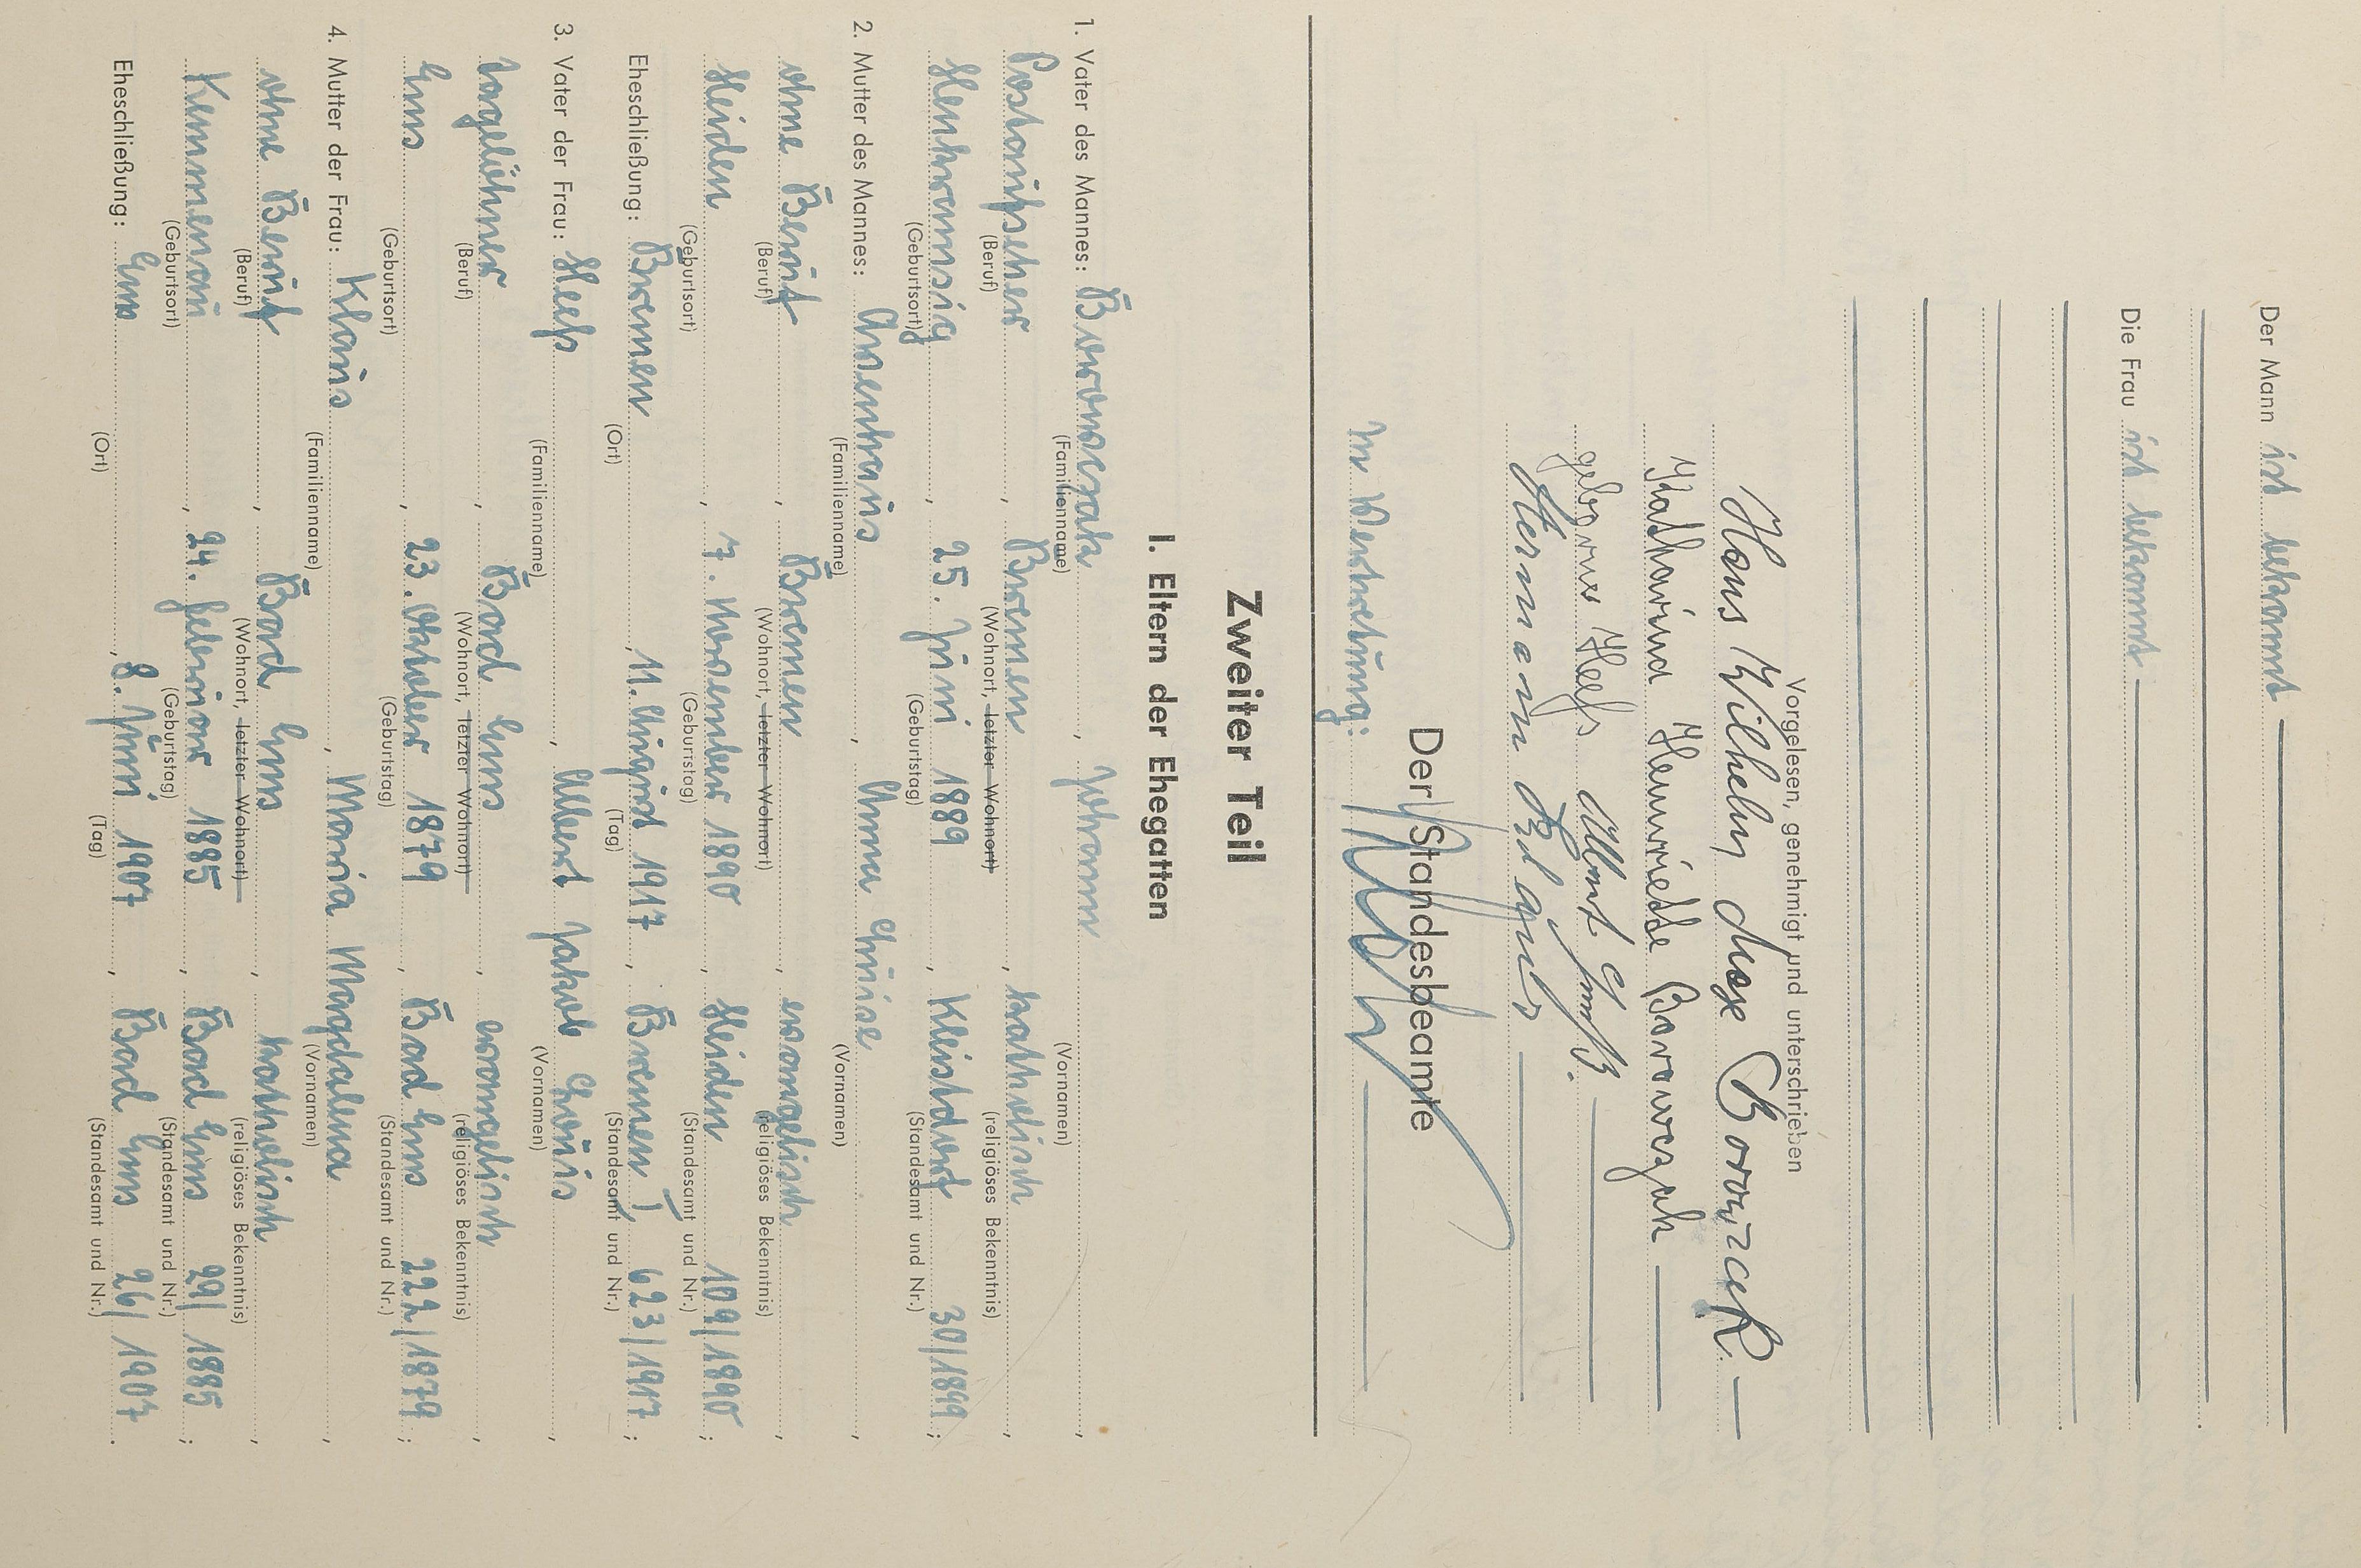 Der Mann ist bekannt
Die Frau ist bekannt
Vorgelesen, genehmigt und unterschrieben
Hans Wilhelm Borowzcak.
Katharina Henriette Borowczak
geborene Heeß
Hermann
Der Standesbeamte
In Vertretung:
Zweiter Teil
I. Eltern der Ehegatten
1. Vater des Mannes: Borowczak, Johann,
(Familienname) (Vornamen)
Postaufseher, Bremen, katholisch,
(Beruf) (Wohnort, letzter Wohnort) (religiöses Bekenntnis)
25. Juni 1889, Kleistdorf 30/1889;
(Geburtsort) (Geburtstag) (Standesamt und Nr.)
2. Mutter des Mannes: Ahrenhaus, Anna Luise,
(Familienname) (Vornamen)
ohne Beruf, Bremen, evangelisch,
(Beruf) (Wohnort, letzter Wohnort) (religiöses Bekenntnis)
Heiden, 7. November 1890, Heiden 109/1890;
(Geburtsort) (Geburtstag) (Standesamt und Nr.)
Eheschließung: Bremen, 11. August 1917, Bremen I 623/1917;
(Ort) (Tag) (Standesamt und Nr.)
3. Vater der Frau: Heeß, Albert Jakob Louis,
(Familienname) (Vornamen)
Tagelöhner, Bad Ems, evangelisch,
(Beruf) (Wohnort, letzter Wohnort) (religiöses Bekenntnis)
Ems, 23. Oktober 1879, Bad Ems 222/1879;
(Geburtsort) (Geburtstag) (Standesamt und Nr.)
4. Mutter der Frau: Klaus, Maria Magdalena,
(Familienname) (Vornamen)
ohne Beruf, Bad Ems, katholisch,
(Beruf) (Wohnort, letzter Wohnort) (religiöses Bekenntnis)
Kemmenau, 24. Februar 1885, Bad Ems 29/1885;
(Geburtsort) (Geburtstag) (Standesamt und Nr.)
Eheschließung: Ems, 8. Juni 1907, Bad Ems 26/1907.
(Ort) (Tag) (Standesamt und Nr.)